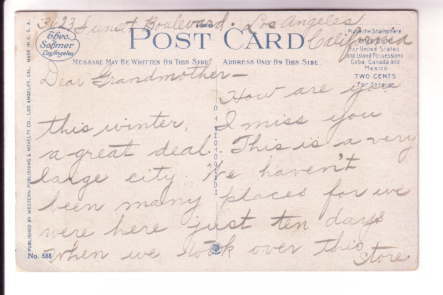 3623 Sunset Boulevard. Los Angeles
California
Theo.
Sohmer
Los Angeles
POST CARD
MESSAGE MAY BE WRITTEN ON THIS SIDE
ADDRESS ONLY ON THIS SIDE
for United States
and Island Possessions
Cuba, Canada and
Mexico
TWO CENTS
Dear Grandmother—
How are you
this winter, I miss you
a great deal. This is a very
large city. We haven't
been many places for we
were here just ten days
when we took over this
store
PUBLISHED BY WESTERN PUBLISHING & NOVELTY CO., LOS ANGELES, CAL. MADE IN U.S.A.
No. 588